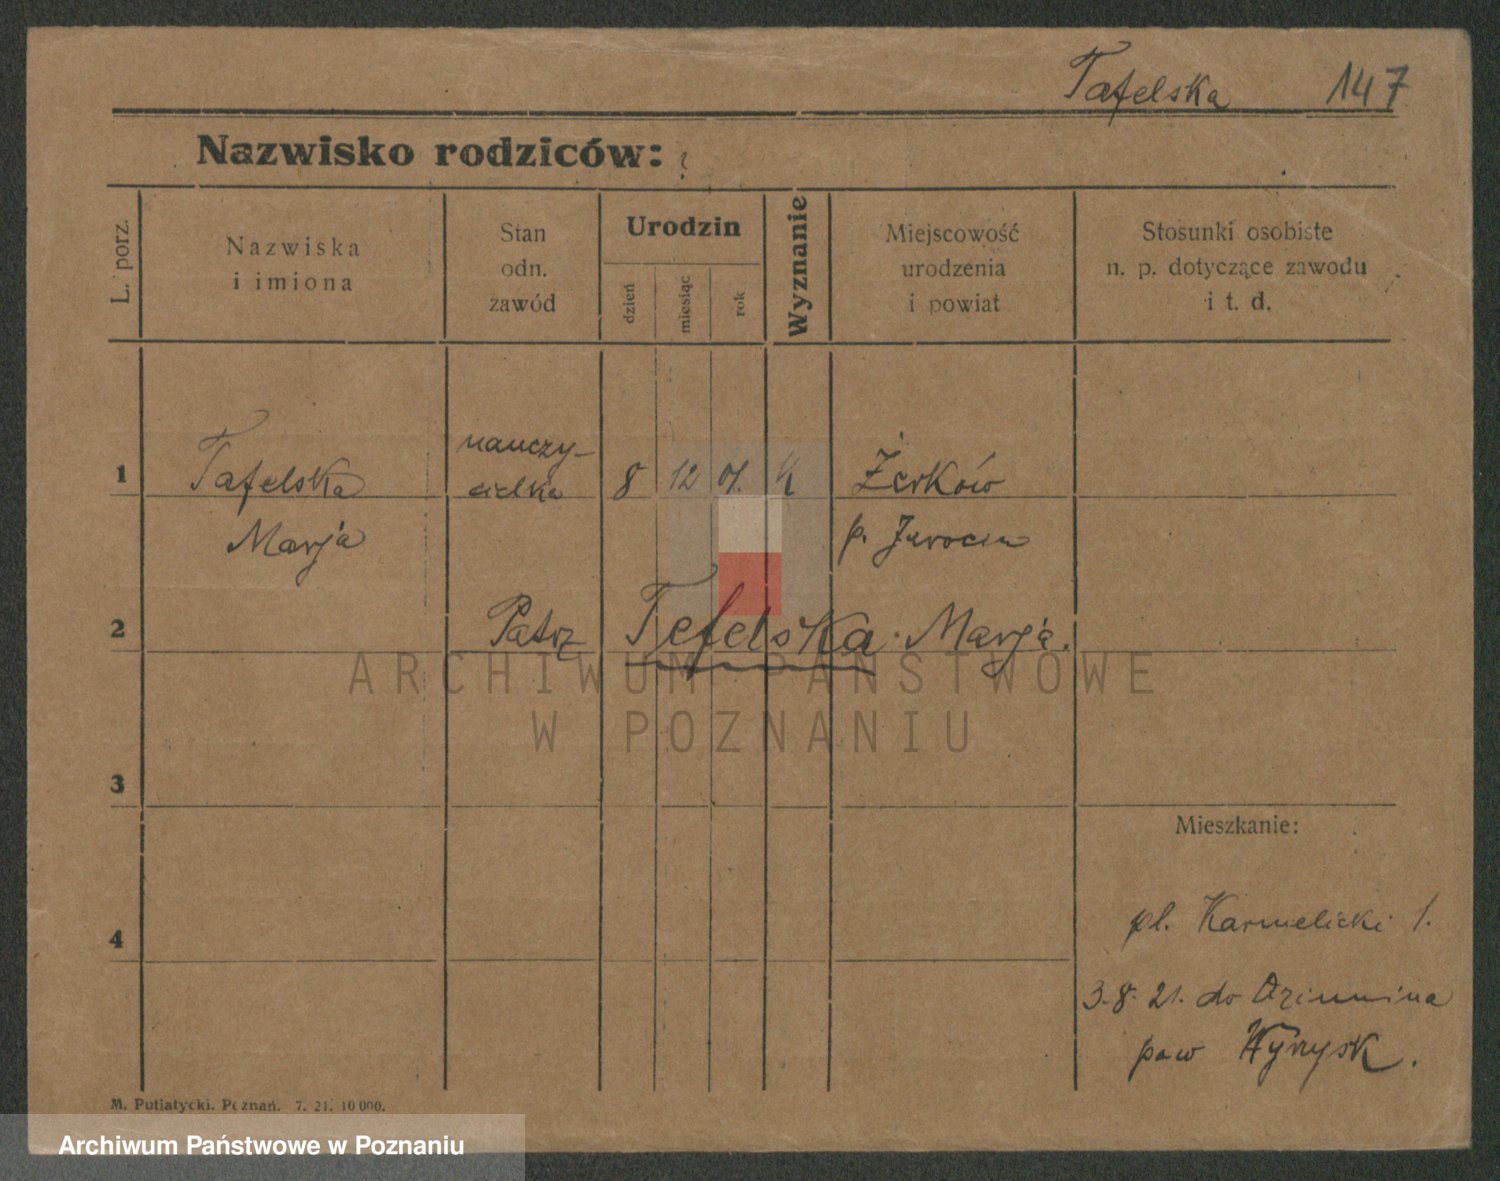 Tafelska 147
Nazwisko rodziców:
L. porz.
Nazwiska
i imiona
Stan
odn.
zawód
Urodzin
dzień
miesiąc
rok
Wyznanie
Miejscowość
urodzenia
i powiat
Stosunki osobiste
n. p. dotyczące zawodu
i t. d.
1
Tafelska
Marja
nauczy-
cielka
8 12 01. k
Żerków
p. Jarocin
2
Patrz Tefelska Marja.
ARCHIWUM PAŃSTWOWE
W POZNANIU
3
Mieszkanie:
4
pl. Karmelicki 1.
3.8.21. do
pow Wyrzysk.
M. Putiatycki. Poznań. 7. 21. 10 000.
Archiwum Państwowe w Poznaniu